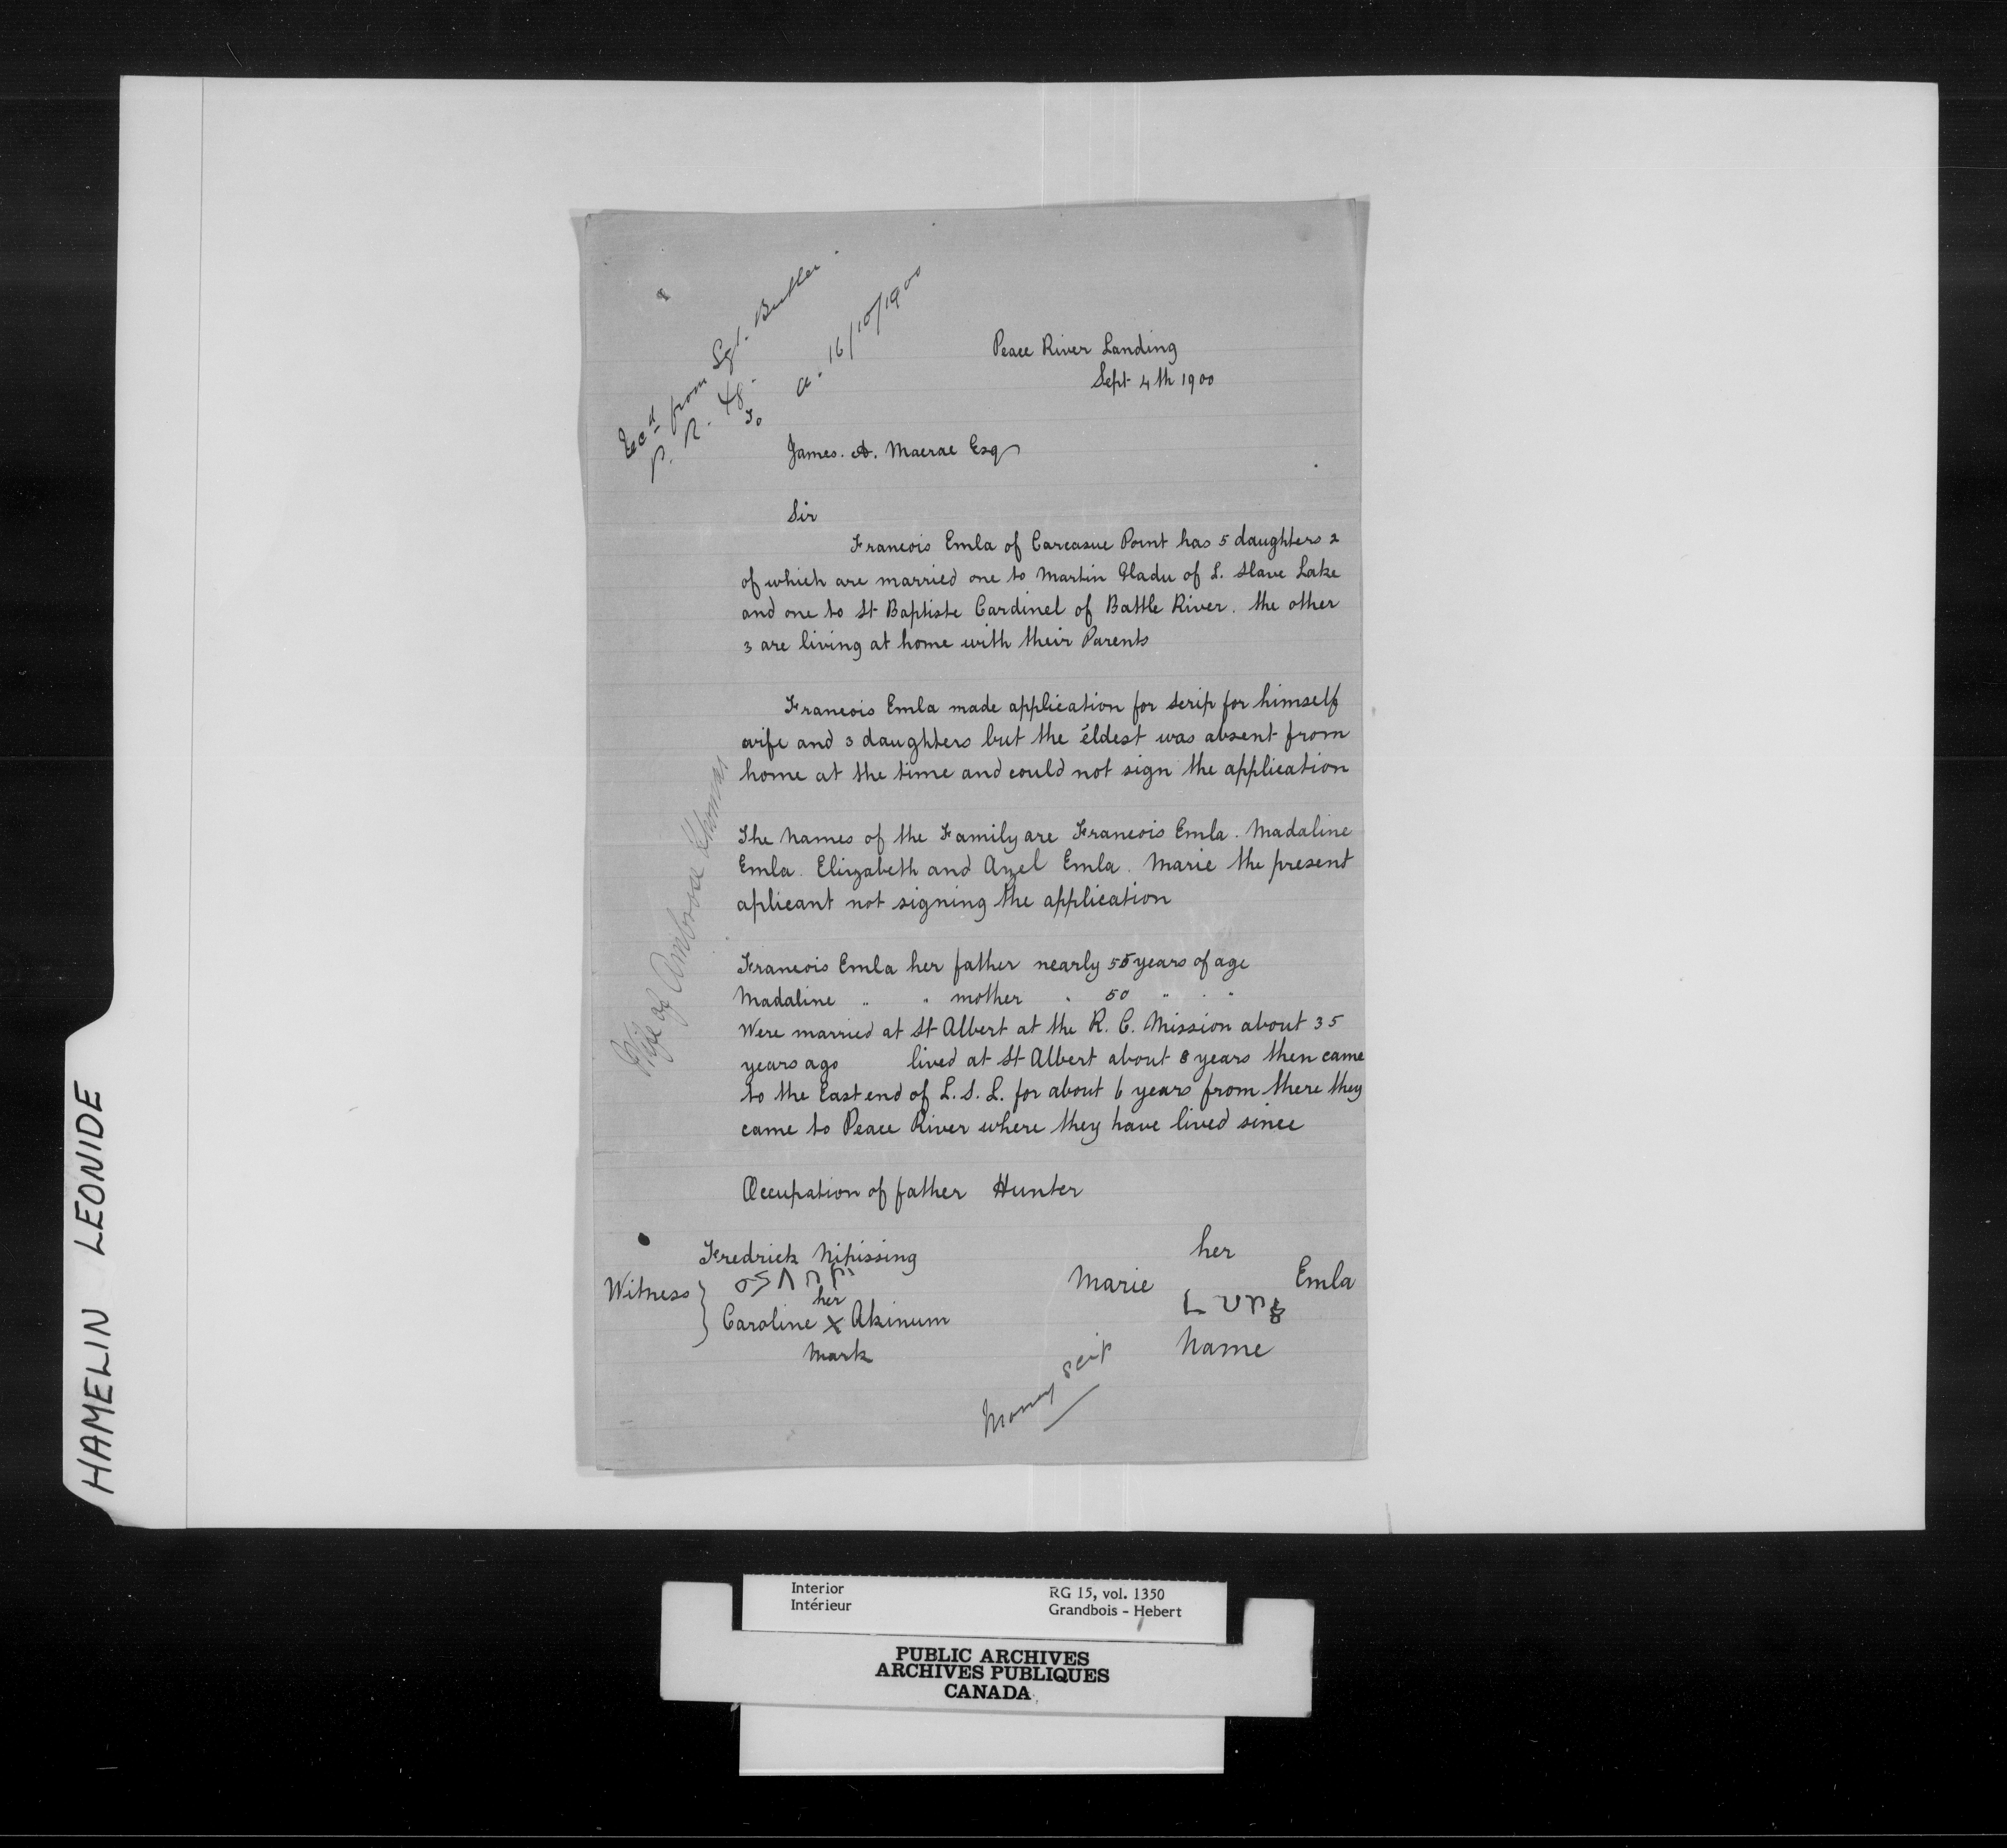 Rec'd from Sgt. Butler
P. R. 48.
a. 16/10/1900
Peace River Landing
Sept 4th 1900
To
James. A. Macrae Esq
Sir
Francois Emla of Carcasue Point has 5 daughters 2
of which are married one to Martin Gladu of L. Slave Lake
and one to St Baptiste Cardinel of Battle River. the other
3 are living at home with their Parents
Francois Emla made application for Scrip for himself
wife and 3 daughters but the eldest was absent from
home at the time and could not sign the application
The names of the Family are Francois Emla. Madaline
Emla. Elizabeth and Azel Emla. Marie the present
aplicant not signing the application
Francois Emla her father nearly 55 years of age
Madaline " " mother " 50 " " "
Were married at St Albert at the R. C. Mission about 35
years ago lived at St Albert about 8 years then came
to the East end of L. S. L. for about 6 years from there they
came to Peace River where they have lived since
Occupation of father Hunter
Wife of Ambrose Thomas
Fredrick Nipissing
Witness }
her
Caroline X Akinum
Mark
her
Marie Emla
Name
Money scrip
HAMELIN LEONIDE
Interior
Intérieur
RG 15, vol. 1350
Grandbois - Hebert
PUBLIC ARCHIVES
ARCHIVES PUBLIQUES
CANADA